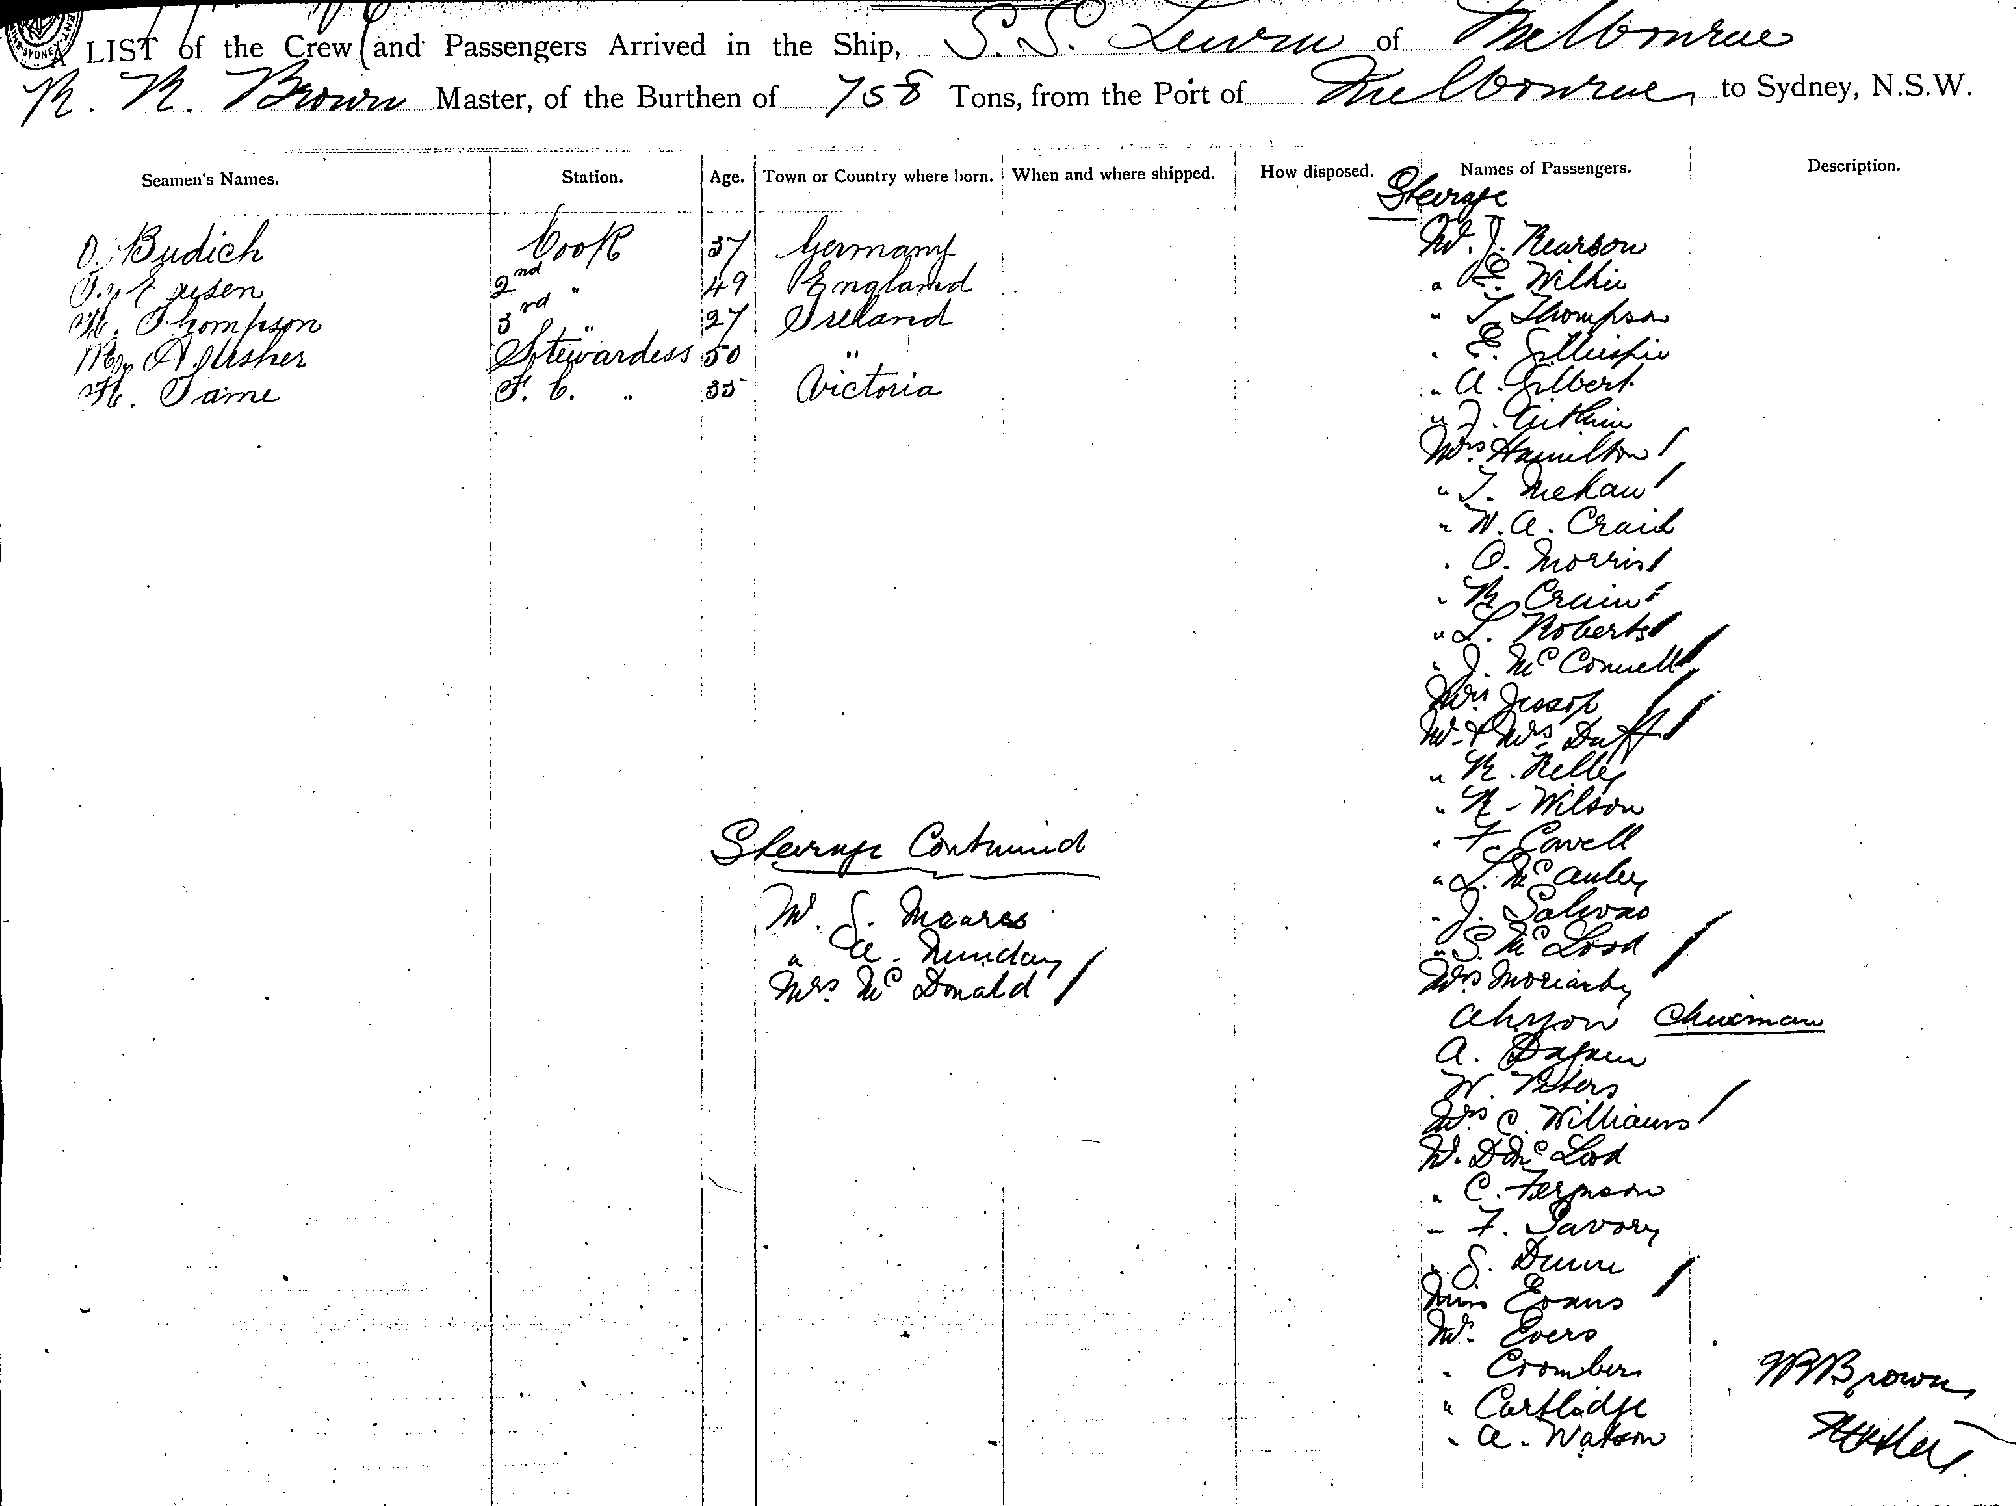 LIST of the Crew and Passengers Arrived in the Ship, S.S. of Melbourne
R. R. Brown Master, of the Burthen of 758 Tons, from the Port of Melbourne, to Sydney, N.S.W.
Seamen's Names. Station. Age. Town or Country where born. When and where shipped. How disposed. Names of Passengers. Description.
Steerage
O. Budich Cook 37 Germany
2nd " 49 England
H. Thompson 3rd " 27 Ireland
Stewardess 50 "
H. Tame F. C. " 35 Victoria
Mr. J. Pearson
" E. Wilkie
" T. Thompson
" E. Gillespie
" A. Gilbert
" J. Aitkin
Mrs Hamilton
" T.
" W. A.
" O. Morris
" R.
" L. Roberts
" J. McConnell
Mrs Jessop
Mr & Mrs Duff
" R. Kelly
" R. Wilson
" F. Cavell
" L. McAuley
" J.
" S. McLeod
Mrs Moriarty
Ahyon Chinaman
A.
W. Peters
Mrs C. Williams
Mr. D McLeod
" C. Ferguson
" F. Savory
" S. Dunn
Miss Evans
Mr. Evers
" Coombes
" Cartlidge
" A. Watson
Steerage Continued
Mr. S. Meares
" A. Munday
Mrs McDonald
RRBrown